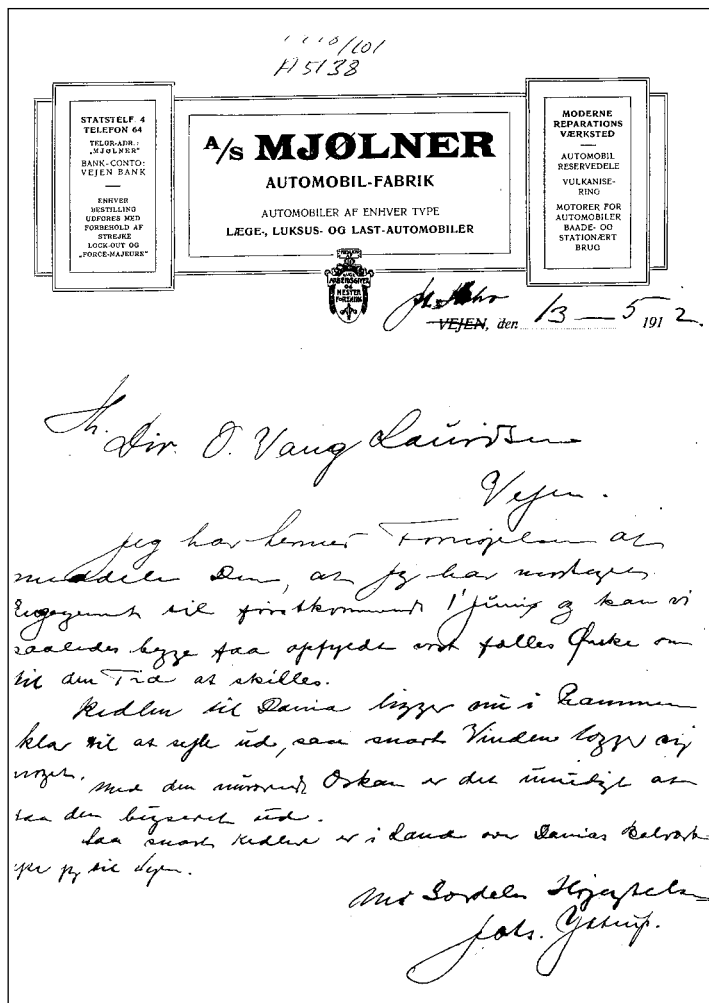 /101
A 5138
STATSTELF. 4
TELEFON 64
TELGR-ADR.:
„MJØLNER"
BANK-CONTO:
VEJEN BANK
ENHVER
BESTILLING
UDFØRES MED
FORBEHOLD AF
STREJKE
LOCK-OUT OG
„FORCE-MAJEURE"
A/S MJØLNER
AUTOMOBIL-FABRIK
AUTOMOBILER AF ENHVER TYPE
LÆGE-, LUKSUS- OG LAST-AUTOMOBILER
MODERNE
REPARATIONS
VÆRKSTED
AUTOMOBIL
RESERVEDELE
VULKANISE-
RING
MOTORER FOR
AUTOMOBILER
BAADE- OG
STATIONÆRT
BRUG
ARBEJDSGIVER
OG
MESTER
FORENING
VEJEN, den 13 — 5 1912.
Hr. Dir. O. Vang Lauridsen
Vejen.
Jeg har herved Fornøjelsen at
meddele Dem, at jeg har modtaget
Engagement til førstkommende 1' Juni og kan vi
saaledes begge faa opfyldt vort fælles Ønske om
til den Tid at skilles.
Kedlen til Dania ligger nu i Havnen
klar til at sejle ud, saa snart Vinden lægger sig
noget. Med den nuværende Orkan er det umuligt at
faa den bugseret ud.
Saa snart Kedlen er i Land over Danias Bolværk
jeg til Vejen.
Med Særdeles Højagtelse
Johs. Ystrup.